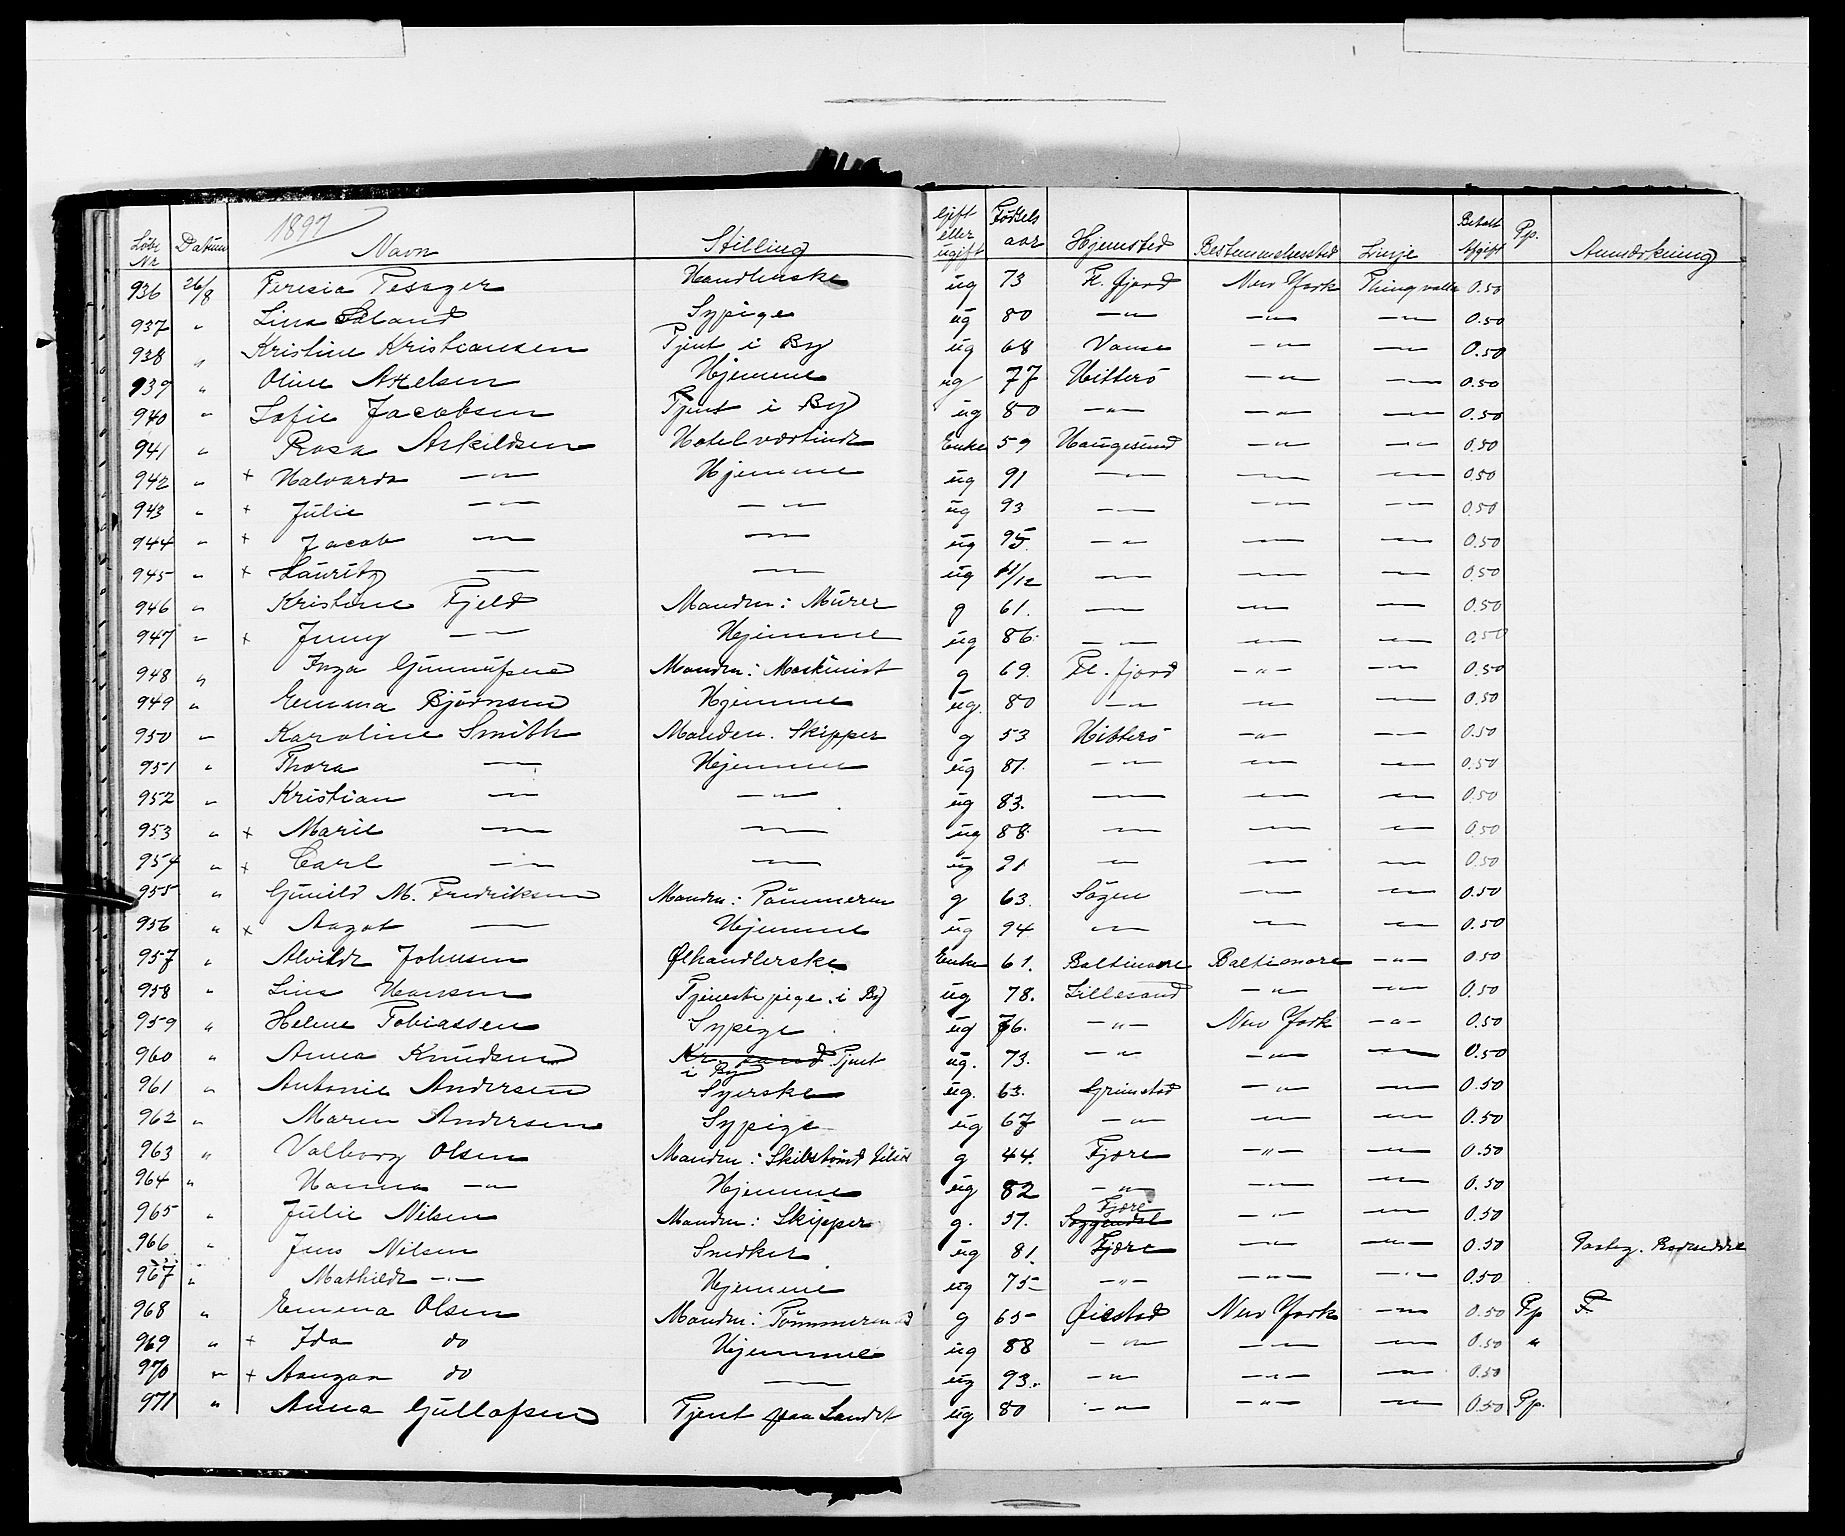 1897
Løbe Nr Datum Navn Stilling Gift eller ugift Fødsels aar Hjemsted Bestemmelsessted Linje Betalt Afgift Pp. Anmærkning
936 26/8 Teresia Tessger Handlerske ug 73 Fl. fjord New York Thingvalla 0.50
937 " Lina Eeland Sypige ug 80 —"— —"— —"— 0.50
938 " Kristine Kristiansen Tjent i By ug 68 Vanse —"— —"— 0.50
939 " Oline Axelsen Hjemme ug 77 Hitterö —"— —"— 0.50
940 " Sofie Jacobsen Tjent i By ug 80 —"— —"— —"— 0.50
941 " Rosa Askildsen Hotelværtinde Enke 59 Haugesund —"— —"— 0.50
942 " + Halvarda —"— Hjemme ug 91 —"— —"— —"— 0.50
943 " + Julie —"— —"— ug 93 —"— —"— —"— 0.50
944 " + Jacob —"— —"— ug 95. —"— —"— —"— 0.50
945 " + Lauritz —"— —"— ug 11/12 —"— —"— —"— 0.50
946 " Kristine Fjeld Manden: Murer g 61. —"— —"— —"— 0.50
947 " + Jenny —"— Hjemme ug 86. —"— —"— —"— 0.50
948 " Inga Gunnufsen Manden: Maskinist g 69. Fl. fjord —"— —"— 0.50
949 " Emma Bjørnsen Hjemme ug. 80 —"— —"— —"— 0.50
950 " Karoline Smith Manden. Skipper g 53 Hitterö —"— —"— 0.50
951 " Thora —"— Hjemme ug 81. —"— —"— —"— 0.50
952 " Kristian —"— —"— ug 83. —"— —"— —"— 0.50
953 " + Marie —"— —"— ug 88. —"— —"— —"— 0.50
954 " + Carl —"— —"— ug 91 —"— —"— —"— 0.50
955 " Gunild M. Fredriksen Manden: Tømmerm g 63. Sögne —"— —"— 0.50
956 " + Aagot —"— Hjemme ug 94 —"— —"— —"— 0.50
957 " Alvilde Johnsen Ølhandlerske Enke 61. Baltimore Baltimore —"— 0.50
958 " Lina Hansen Tjenestepige i By ug 78. Lillesand —"— —"— 0.50
959 " Helene Tobiassen Sypige ug 76. —"— New York —"— 0.50
960 " Anna Knudsen Kr.sand Tjent i By ug. 73. —"— —"— —"— 0.50
961 " Antonie Andersen Syerske ug. 63. Grimstad —"— —"— 0.50
962 " Maren Andersen Sypige ug 67 —"— —"— —"— 0.50
963 " Valborg Olsen Manden: Skibstømd g 44. Fjære —"— —"— 0.50
964 " Hanna —"— Hjemme ug 82 —"— —"— —"— 0.50
965 " Julie Nilsen Manden: Skipper g. 57. Soggendal Fjære —"— —"— 0.50
966 " Jens Nilsen Snedker ug 81. Fjære —"— —"— 0.50
967 " Mathilde —"— Hjemme ug 75 —"— —"— —"— 0.50
968 " Emma Olsen Manden: Tømmermand g 65 Øiestad New York —"— 0.50 Pp F.
969 " + Ida do Hjemme ug 88 —"— —"— —"— 0.50 "
970 " + Aangar do —"— ug 93. —"— —"— —"— 0.50
971 " Anna Gullafsen Tjent paa Landet ug 80 —"— —"— —"— 0.50 Pp.